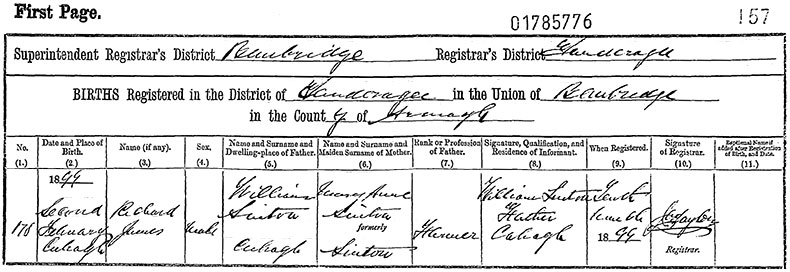 First Page.
01785776
157
Superintendent Registrar's District Banbridge Registrar's District Tanderagee
BIRTHS Registered in the District of Tanderagee in the Union of Banbridge
in the County of Armagh
No. Date and Place of Birth. Name (if any). Sex. Name and Surname and Dwelling-place of Father. Name and Surname and Maiden Surname of Mother. Rank or Profession of Father. Signature, Qualification, and Residence of Informant. When Registered. Signature of Registrar. Baptismal Name if added after Registration of Birth, and Date.
(1.) (2.) (3.) (4.) (5.) (6.) (7.) (8.) (9.) (10.) (11.)
1899
William Mary Anne William Sinton Tenth
Second Richard Sinton Sinton Father
178 February James Male formerly Farmer 1899
Sinton Registrar.